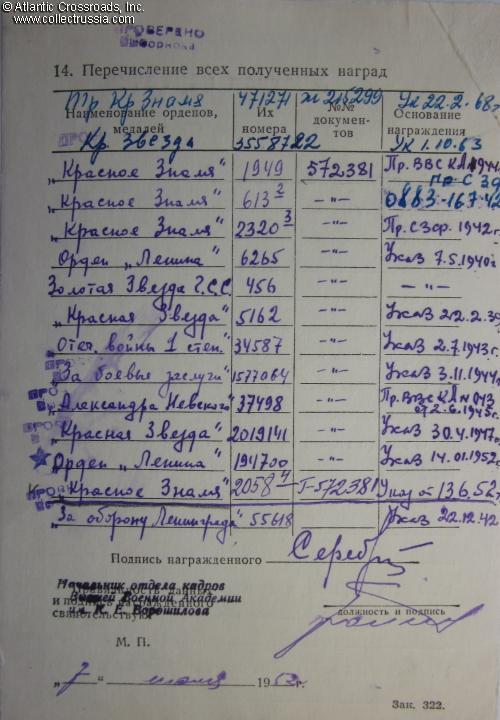 © Atlantic Crossroads, Inc.
www.collectrussia.com
ПРОВЕРЕНО
14. Перечисление всех полученных наград
Тр Кр Знамя 471271 215299 Ук 22.2.68г
Наименование орденов, медалей Их номера №№ документов Основание награждения
Кр Звезда 3558782 Ук 1.10.63
„Красное Знамя" 1949 572381 Пр. ВВС КА 1941
„Красное Знамя" 613² —"— 0883-16.7.42
„Красное Знамя" 2320³ —"— Пр. СЗФр. 1942г.
Орден „Ленина" 6265 —"— Указ 7.5.1940г.
Золотая Звезда Г.С.С. 456 —"— —"—
„Красная Звезда" 5162 —"— Указ 22.2.39
„Отеч. войны 1 степ." 34587 —"— Указ 2.7.1943г.
„За боевые заслуги" 1577064 —"— Указ 3.11.1944г.
„Александра Невского" 37498 —"— Пр. ВВС КА N 043 от 2.6.1945г.
„Красная Звезда" 2019141 —"— Указ 30.4.1947г.
Орден „Ленина" 194700 —"— Указ 14.01.1952г.
„Красное Знамя" 2058⁴ Г-572381 Указ от 13.6.52
„За оборону Ленинграда" 55618 —"— Указ 22.12.42
Подпись награжденного
Правильность данных
Начальник отдела кадров
и подписи награжденного
Высшей Военной Академии
свидетельствую
им К. Е. Ворошилова
должность и подпись
М. П.
„7" 1952г.
Зак. 322.